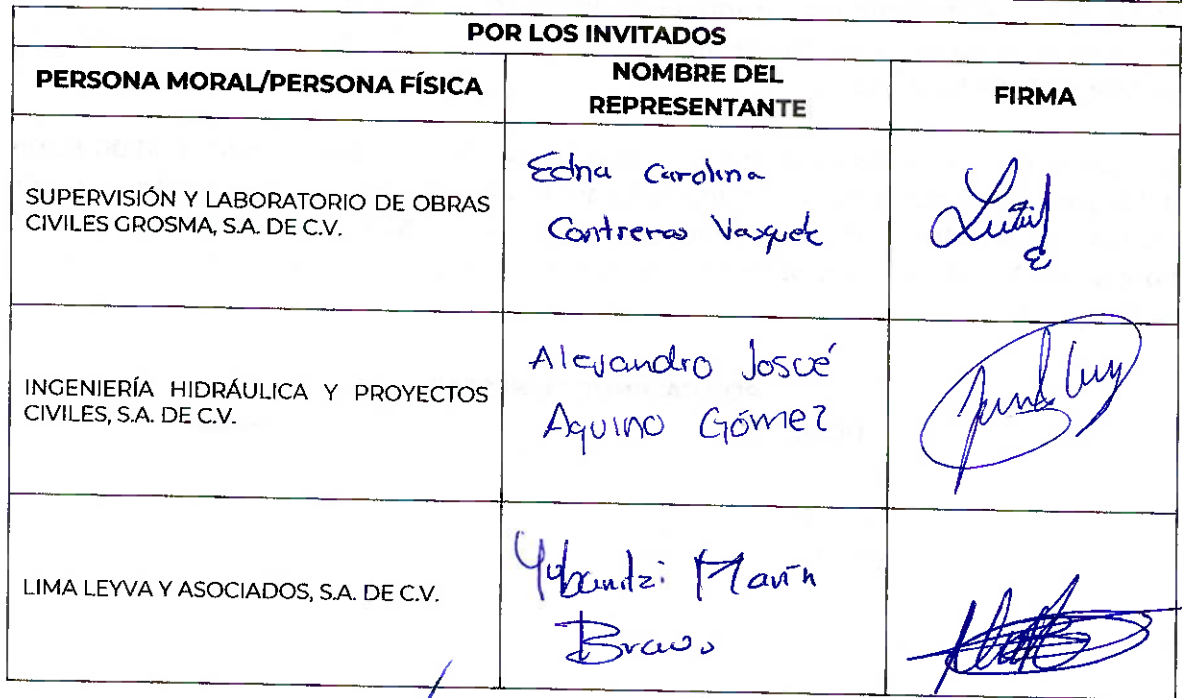 POR LOS INVITADOS
PERSONA MORAL/PERSONA FÍSICA
NOMBRE DEL
REPRESENTANTE
FIRMA
SUPERVISIÓN Y LABORATORIO DE OBRAS
CIVILES GROSMA, S.A. DE C.V.
Edna Carolina
Contreras Vasquez
INGENIERÍA HIDRÁULICA Y PROYECTOS
CIVILES, S.A. DE C.V.
Alejandro Josué
Aquino Gómez
LIMA LEYVA Y ASOCIADOS, S.A. DE C.V.
Marín
Bravo